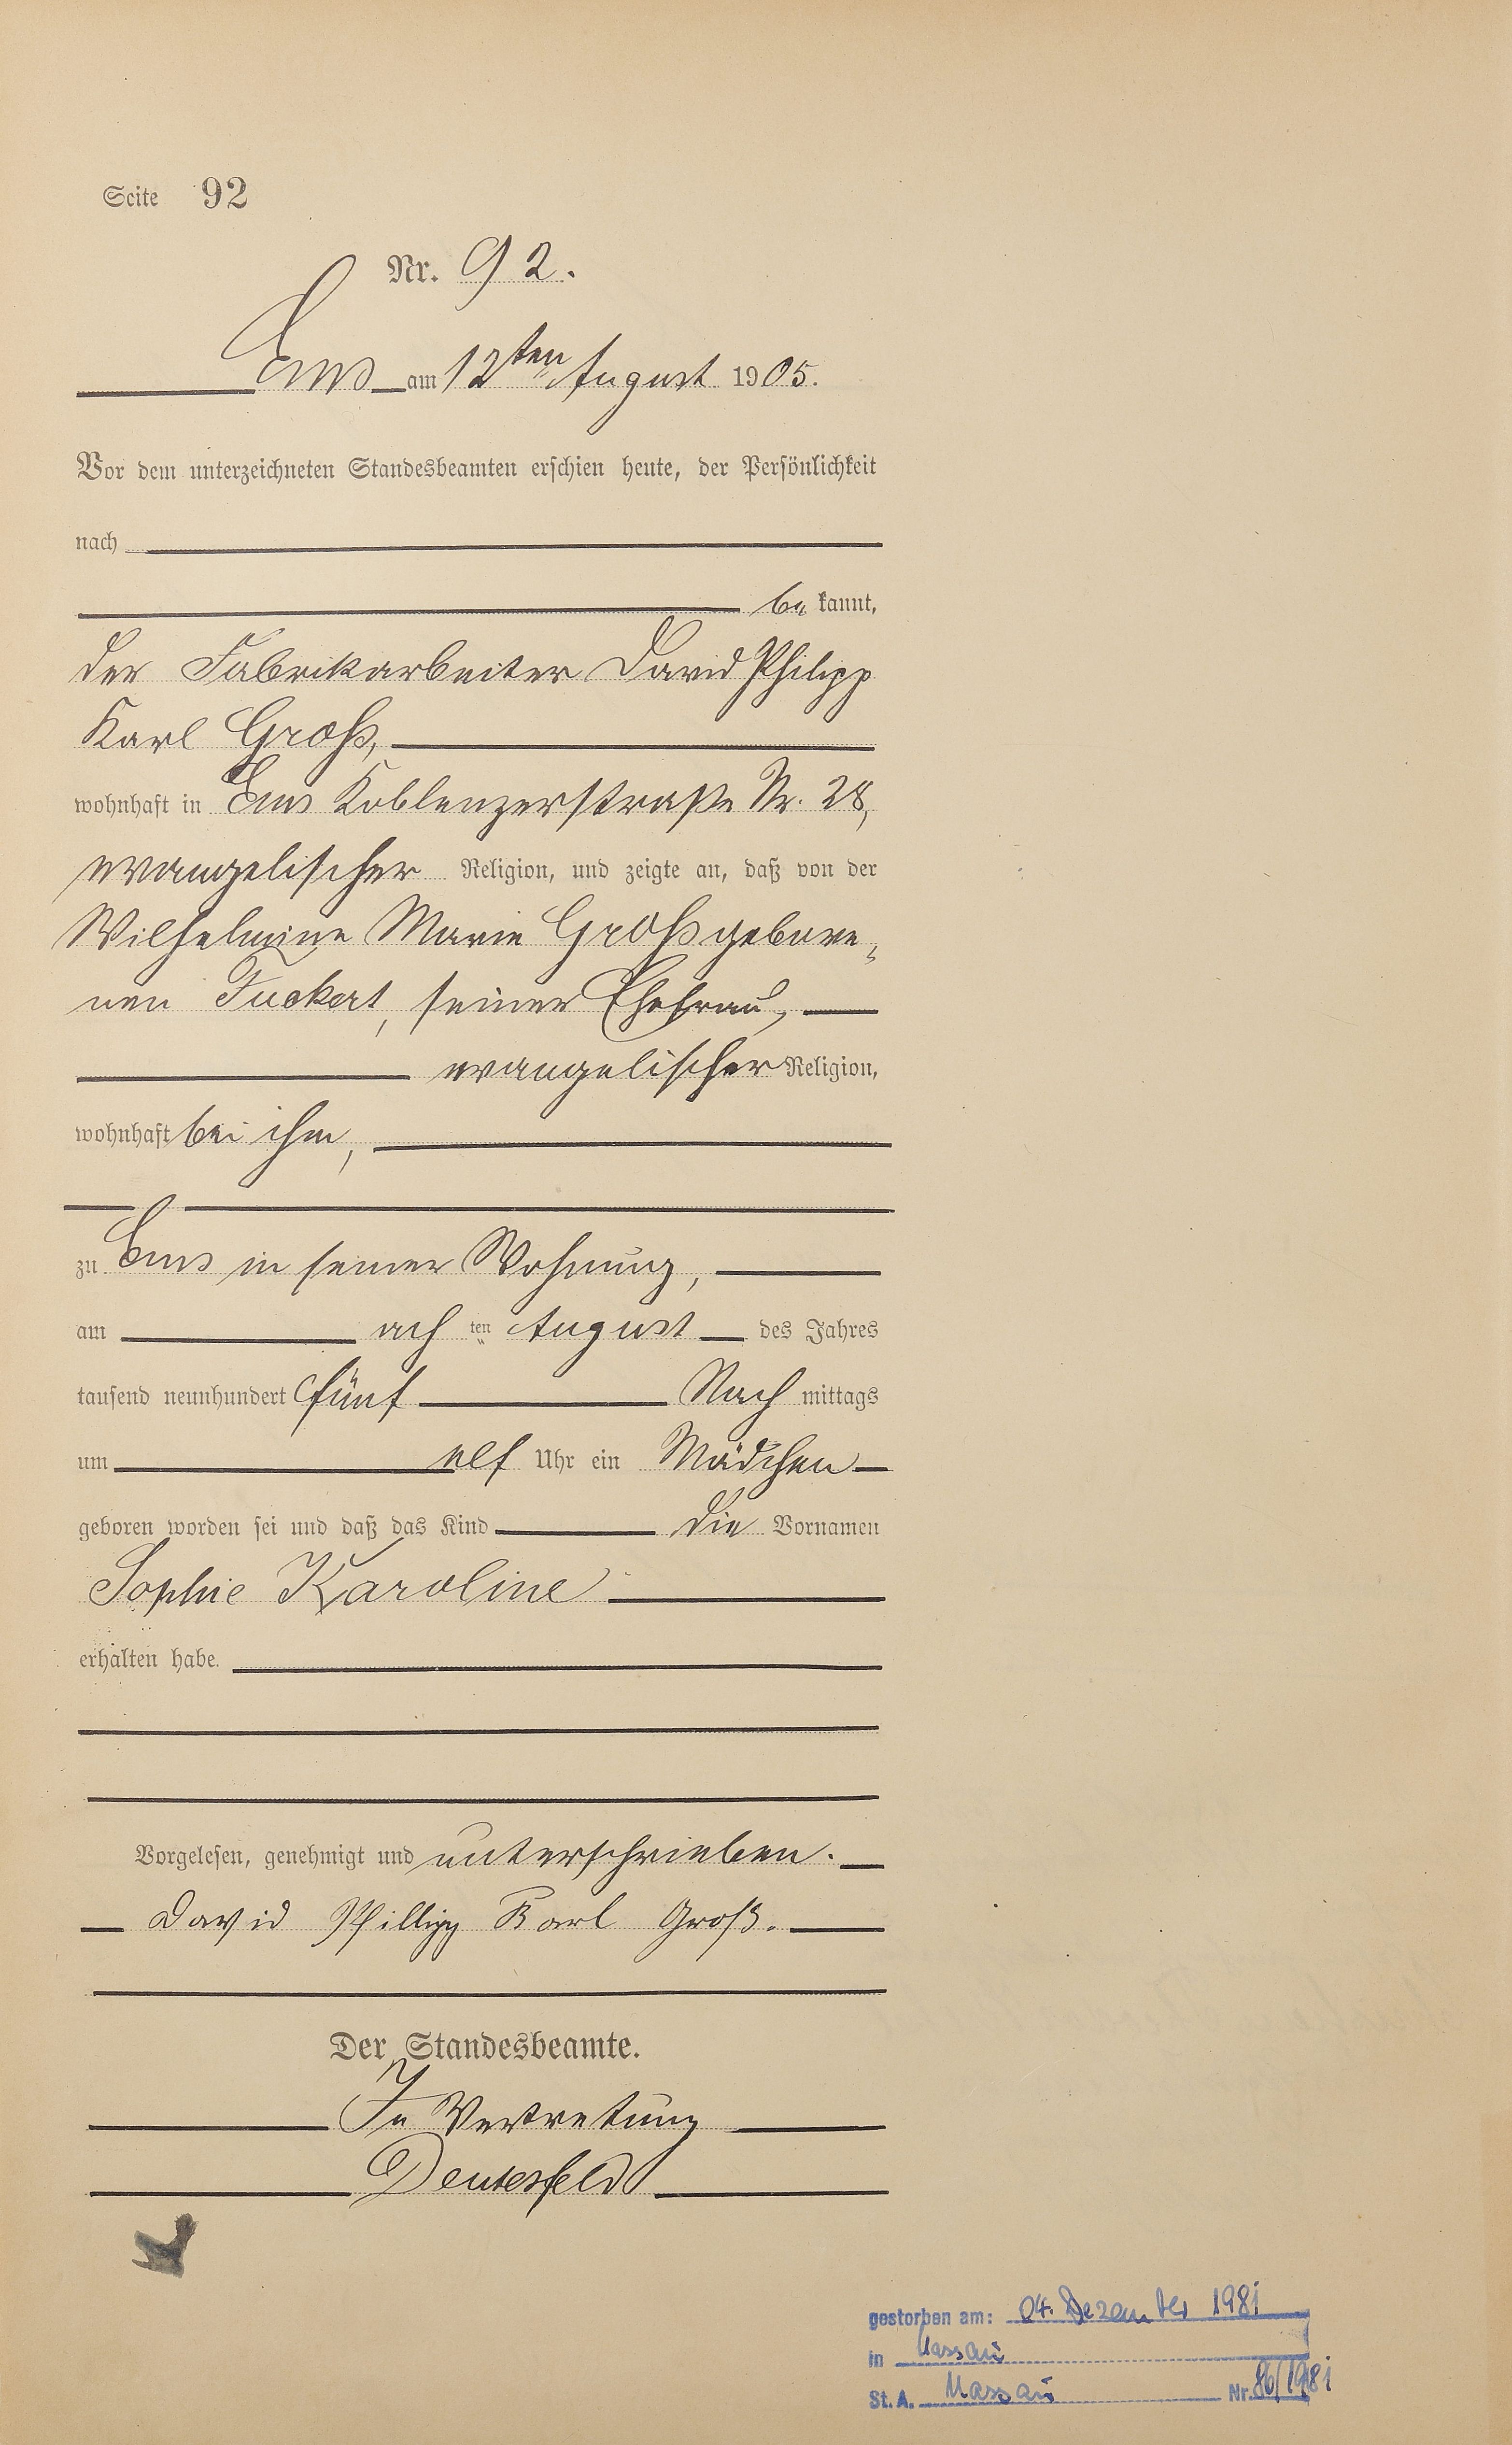 Seite 92
Nr. 92.
Ems am 12ten August 1905.
Vor dem unterzeichneten Standesbeamten erschien heute, der Persönlichkeit
nach
bekannt,
der Fabrikarbeiter David Philipp
Karl Groß,
wohnhaft in Ems Koblenzerstraße Nr. 28,
evangelischer Religion, und zeigte an, daß von der
Wilhelmine Marie Groß gebore-
nen Fuckert, seiner Ehefrau,
evangelischer Religion,
wohnhaft bei ihm,
zu Ems in seiner Wohnung,
am achten August des Jahres
tausend neunhundert fünf Nachmittags
um elf Uhr ein Mädchen
geboren worden sei und daß das Kind die Vornamen
Sophie Karoline
erhalten habe.
Vorgelesen, genehmigt und unterschrieben.
David Phillipp Karl Groß.
Der Standesbeamte.
In Vertretung
Deutesfeld
gestorben am: 04. Dezember 1981
in Nassau
St. A. Nassau Nr. 86/1981